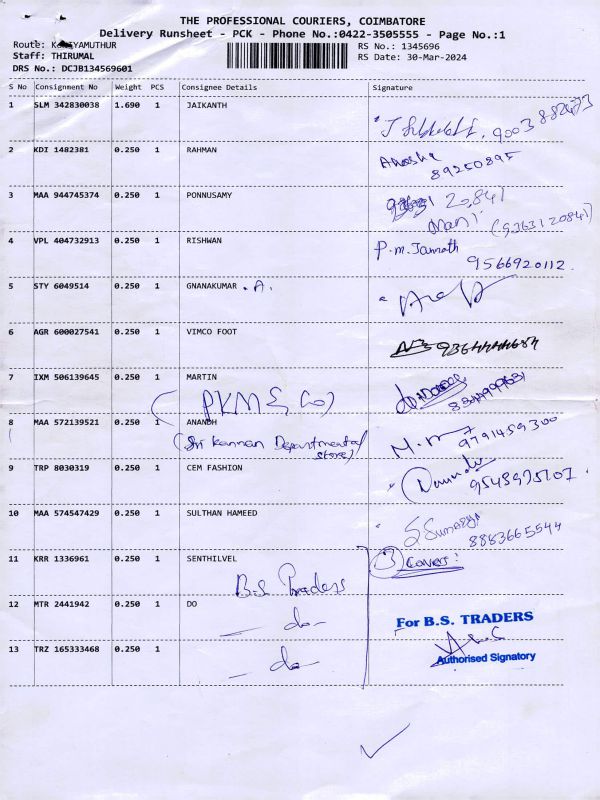 THE PROFESSIONAL COURIERS, COIMBATORE
Delivery Runsheet - PCK - Phone No.:0422-3505555 - Page No.:1
Route:
RS No.: 1345696
Staff: THIRUMAL
RS Date: 30-Mar-2024
DRS No.: DCJB134569601
S No Consignment No Weight PCS Consignee Details Signature
1 SLM 342830038 1.690 1 JAIKANTH
2 KDI 1482381 0.250 1 RAHMAN
89250895
3 MAA 944745374 0.250 1 PONNUSAMY
20,841
Mani (9363120841)
4 VPL 404732913 0.250 1 RISHWAN P.m.
9566920112
5 STY 6049514 0.250 1 GNANAKUMAR .A.
6 AGR 600027541 0.250 1 VIMCO FOOT
7 IXM 506139645 0.250 1 MARTIN
PKMS
8 MAA 572139521 0.250 1 ANANDH 9791459300
(Sri Kannan Departmental
Store)
9 TRP 8030319 0.250 1 CEM FASHION
10 MAA 574547429 0.250 1 SULTHAN HAMEED
8883665544
11 KRR 1336961 0.250 1 SENTHILVEL 3 Covers
B.S. Traders
12 MTR 2441942 0.250 1 DO
— do —
For B.S. TRADERS
13 TRZ 165333468 0.250 1
— do —
Authorised Signatory